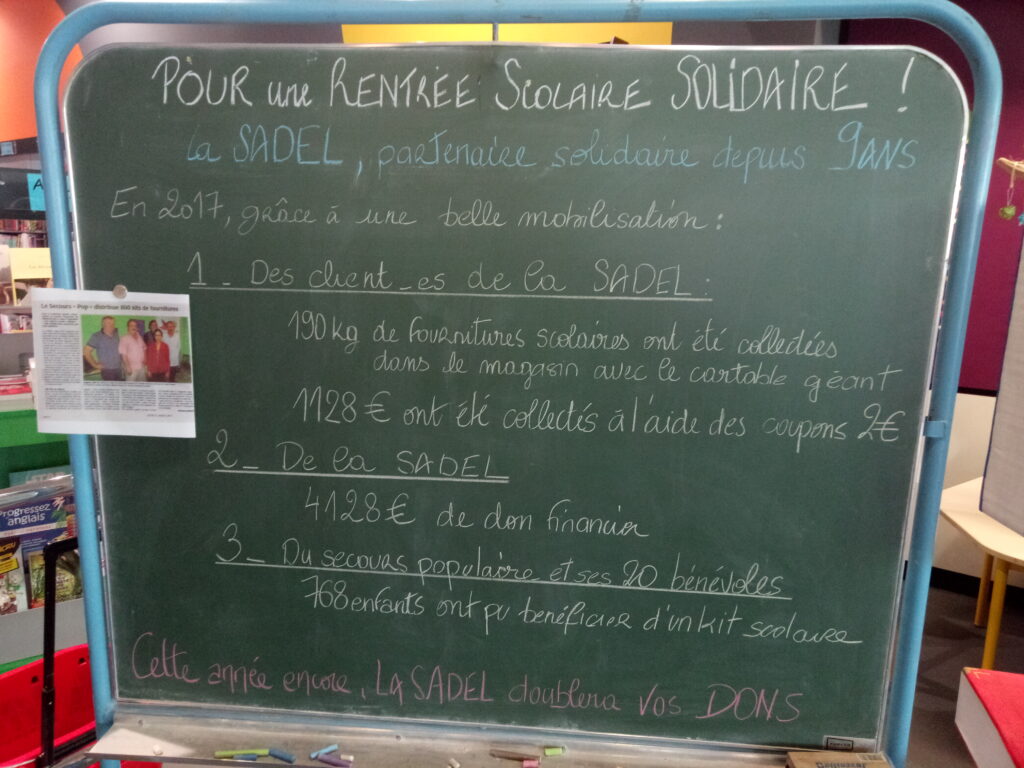 POUR une RENTRÉE SCOLAIRE SOLIDAIRE !
La SADEL, partenaire solidaire depuis 9ANS
En 2017, grâce à une belle mobilisation :
1_ Des client_es de la SADEL :
190kg de fournitures scolaires ont été collectées
dans le magasin avec le cartable géant
1128€ ont été collectés à l'aide des coupons 2€
2_ De la SADEL
4128€ de don financier
3_ Du secours populaire et ses 20 bénévoles
768 enfants ont pu bénéficier d'un kit scolaire
Cette année encore, LA SADEL doublera vos DONS
Le Secours « Pop » distribue 800 kits de fournitures
Progressez
anglais